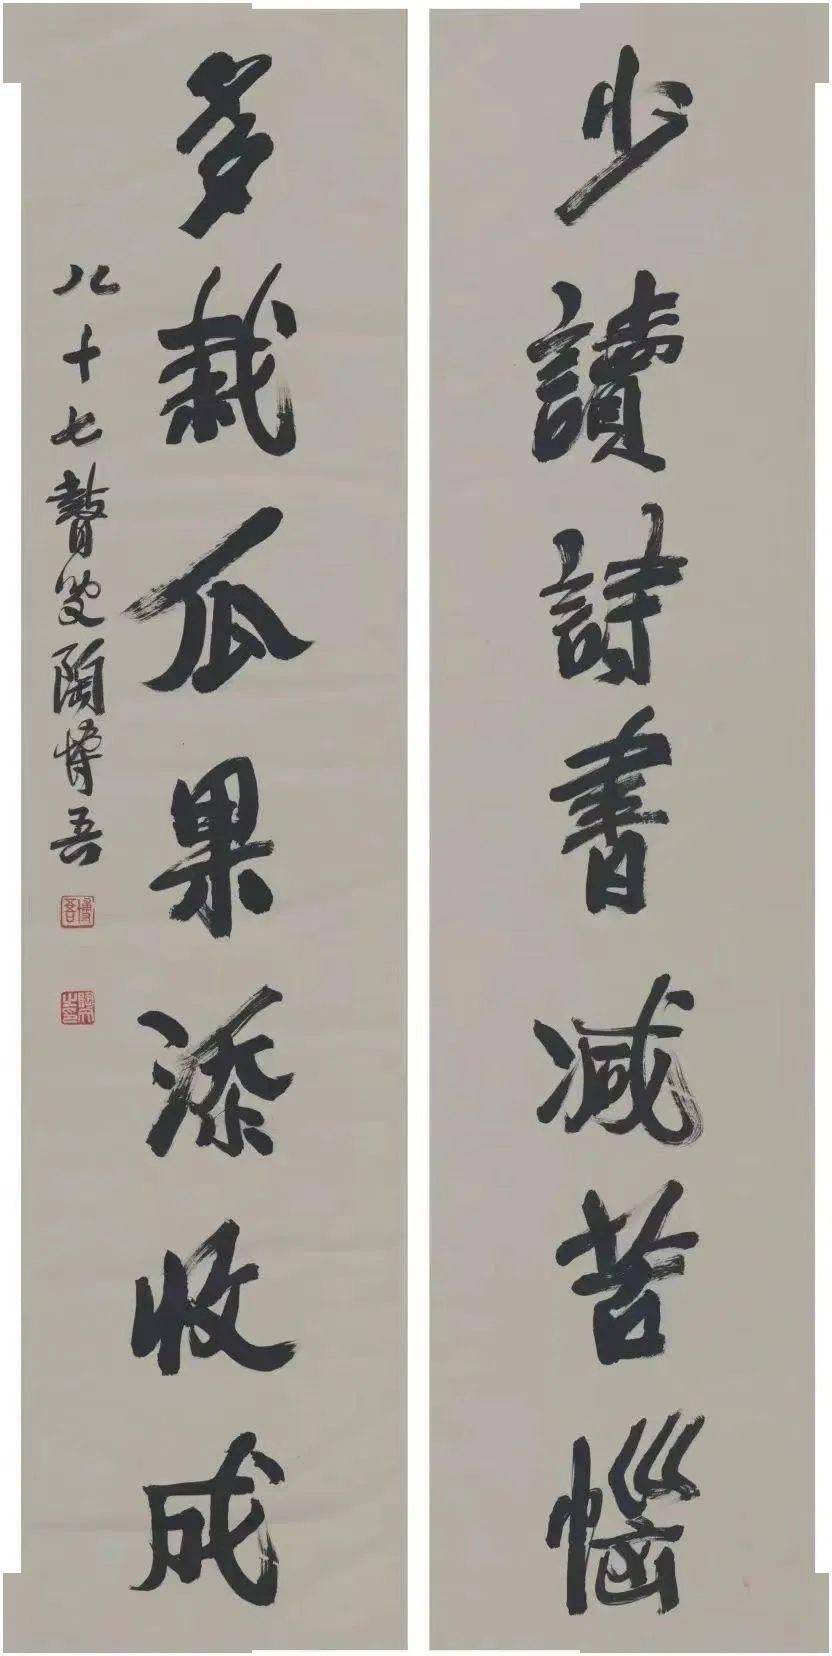 少讀詩書減苦惱
多栽瓜果添收成
八十七瞽叟陶博吾
博吾